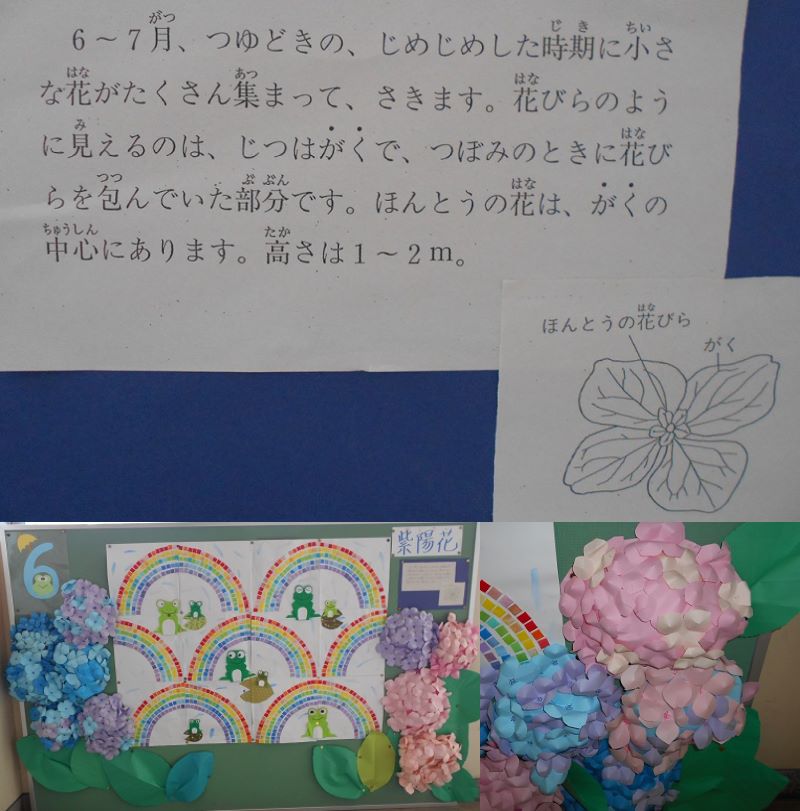 6〜7月、つゆどきの、じめじめした時期に小さ
な花がたくさん集まって、さきます。花びらのよう
に見えるのは、じつはがくで、つぼみのときに花び
らを包んでいた部分です。ほんとうの花は、がくの
中心にあります。高さは1〜2m。
ほんとうの花びら
がく
6
紫陽花